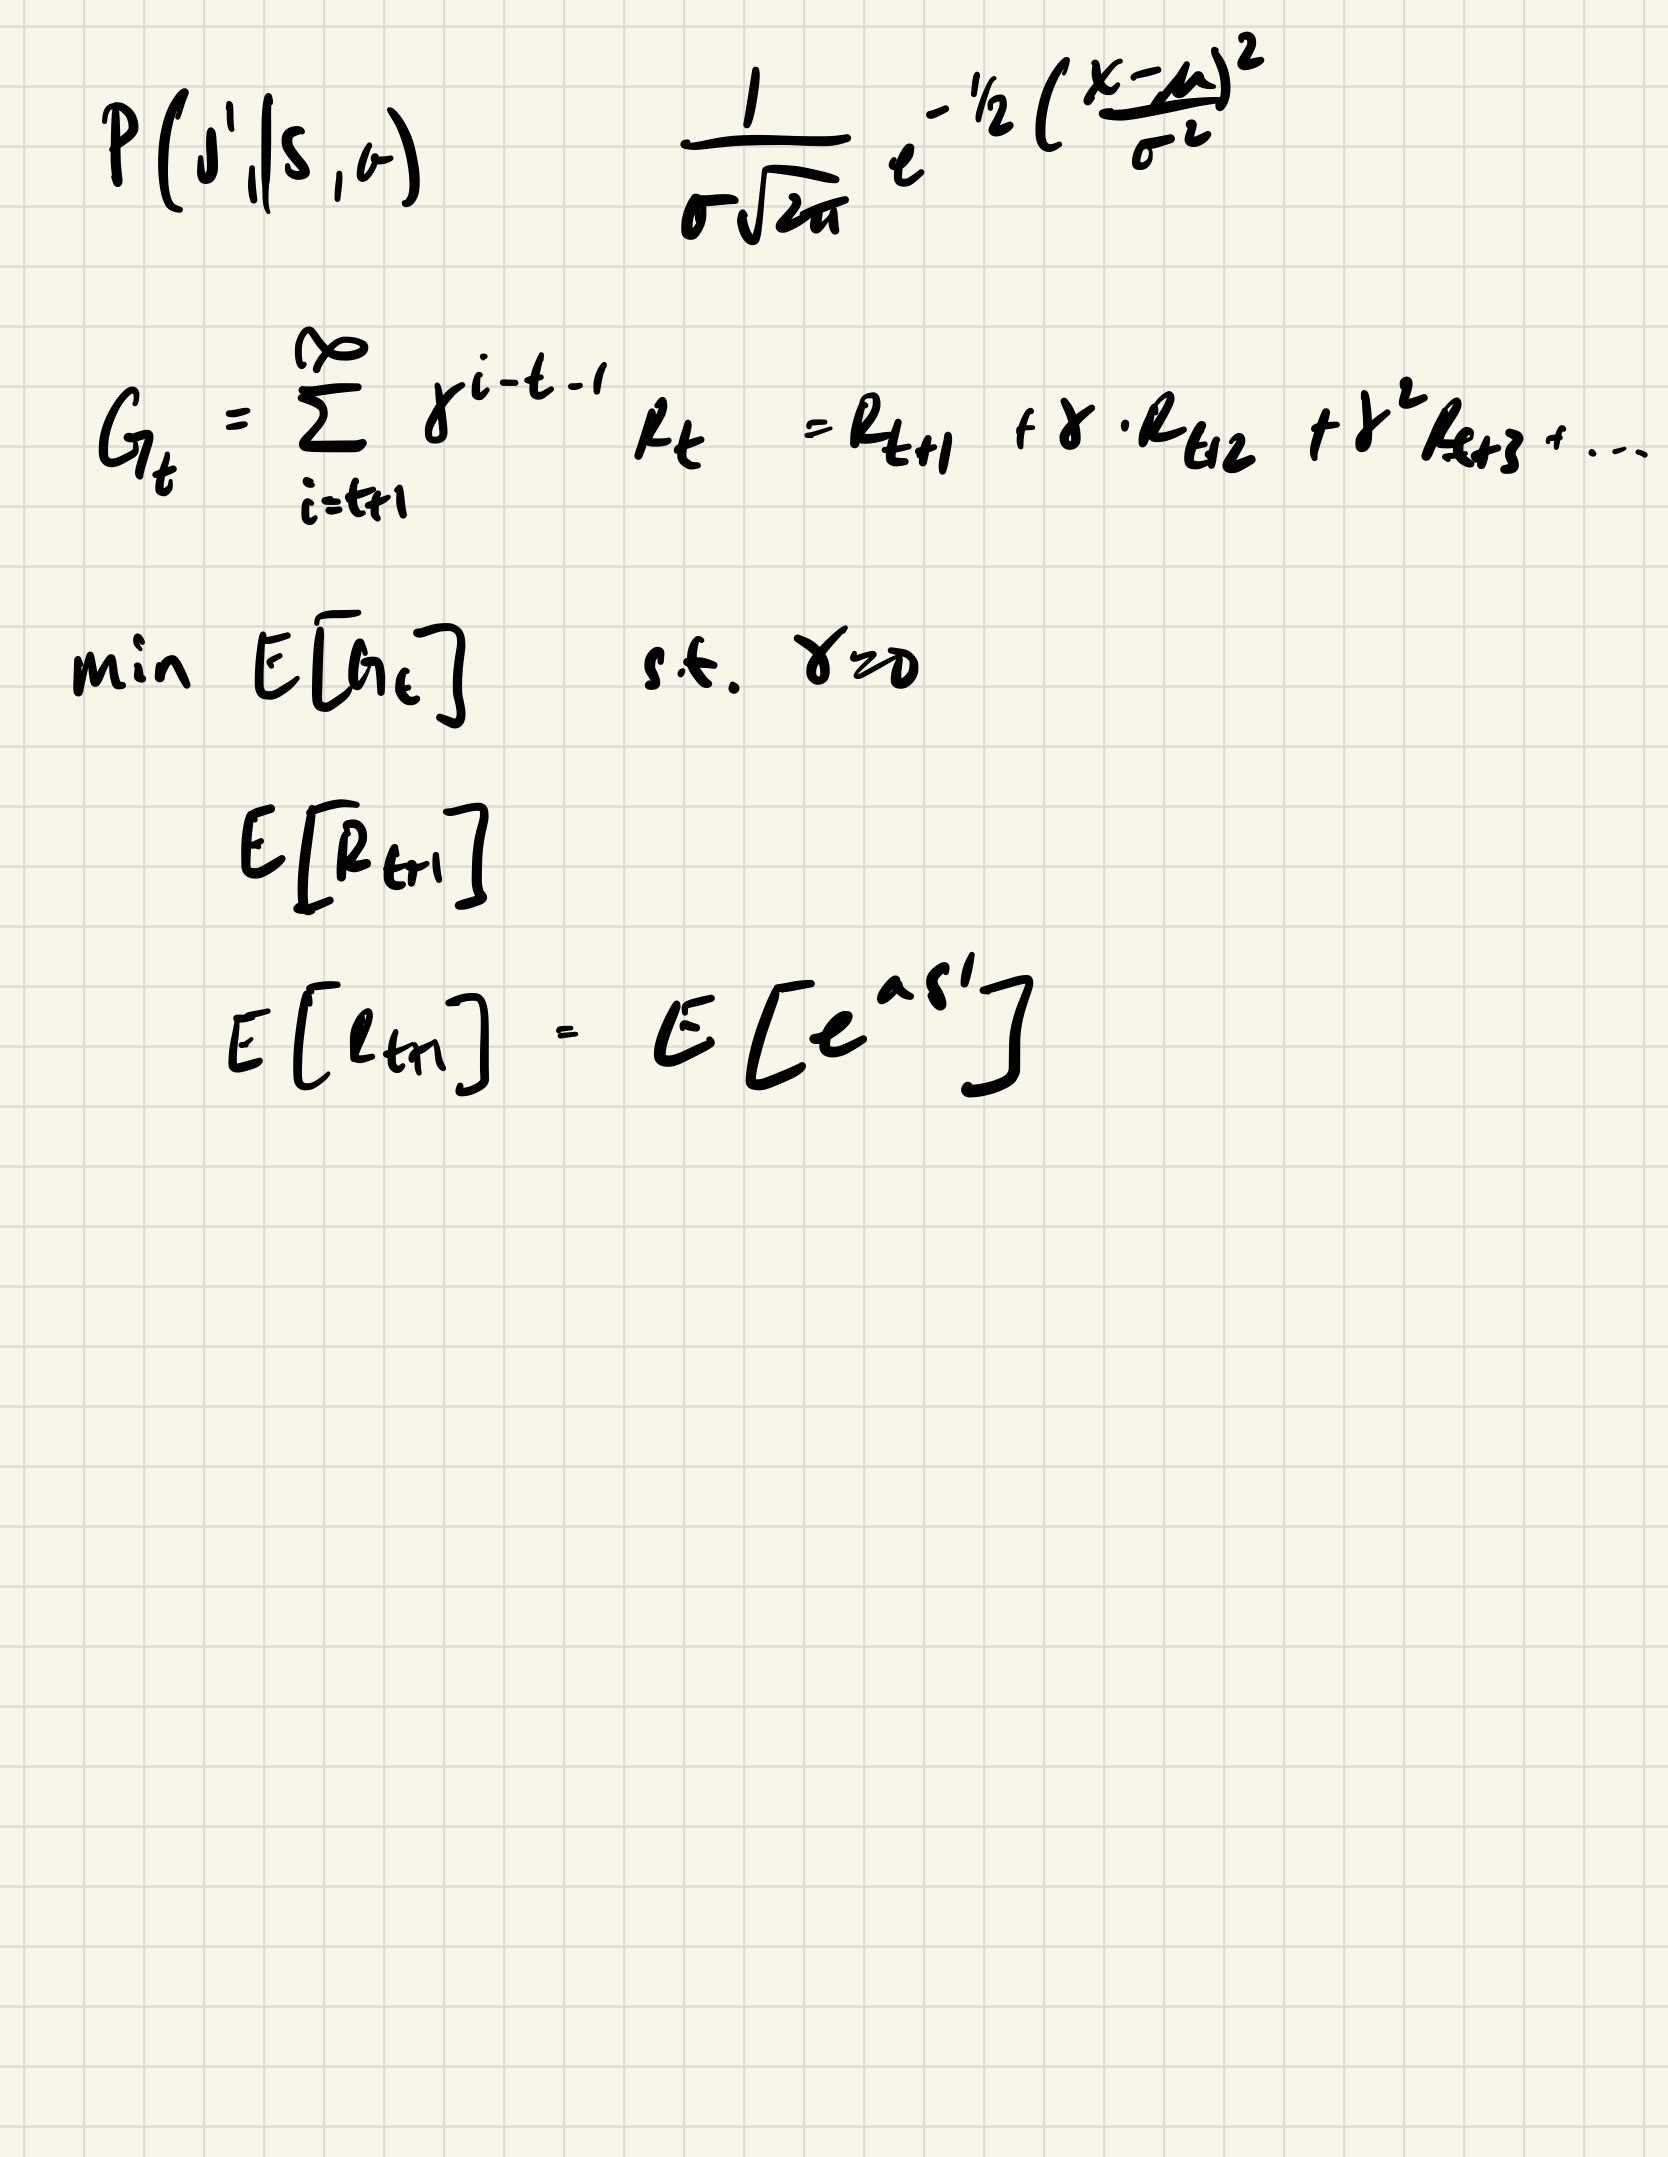 P(s',|s,a) 1/(σ√2π) e^{-1/2 ((x-μ)/σ^2)^2}
G_t = ∑_{i=t+1}^{∞} γ^{i-t-1} R_t = R_{t+1} + γ·R_{t+2} + γ^2 R_{t+3} + ...
min E[G_t] s.t. γ=0
E[R_{t+1}]
E[R_{t+1}] = E[e^{as'}]